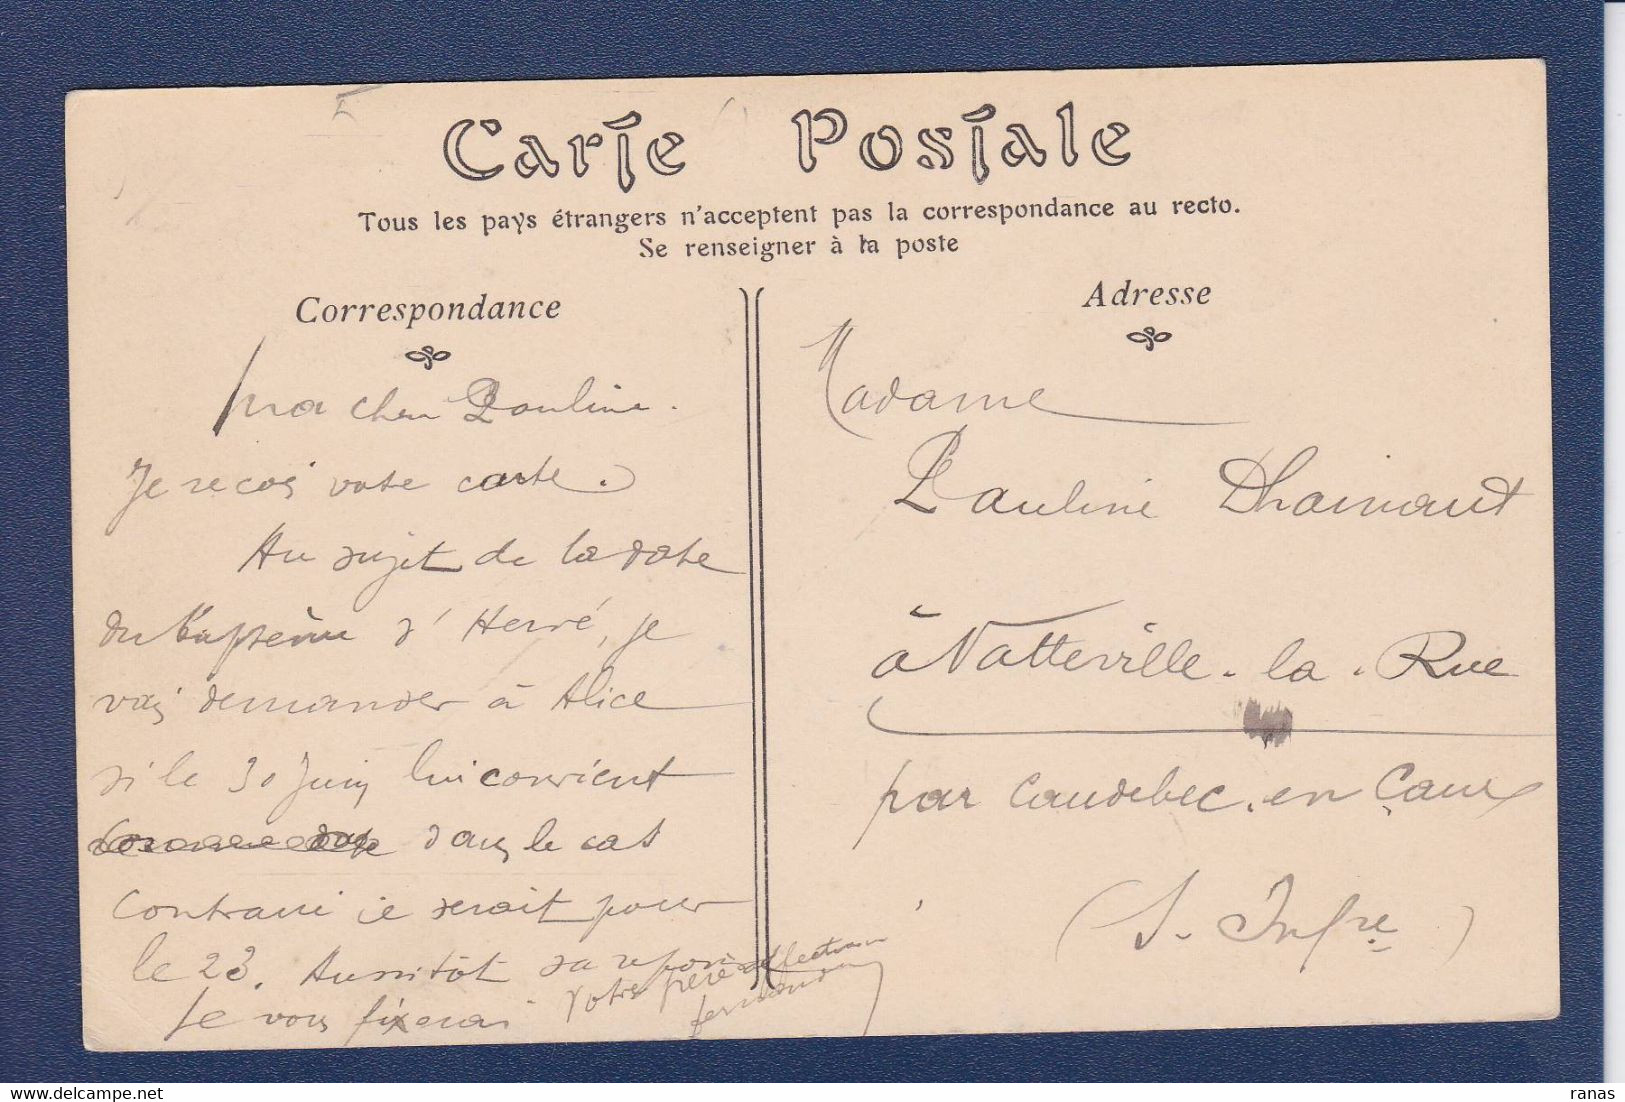 Carte Postale
Tous les pays étrangers n'acceptent pas la correspondance au recto.
Se renseigner à la poste
Correspondance
ma cher Pauline.
Je reçois votre carte.
Au sujet de la date
du Baptême d'Hervé, je
vais demander à Alice
si le 30 Juin lui convient
dans le cas
contraire ce serait pour
le 23. Aussitôt sa réponse
Je vous fixerai
Votre frère affectionné
fernand
Adresse
Madame
Pauline Dhainaut
à Vatteville-la-Rue
par Caudebec-en-Caux
(S. Infre)
ranas